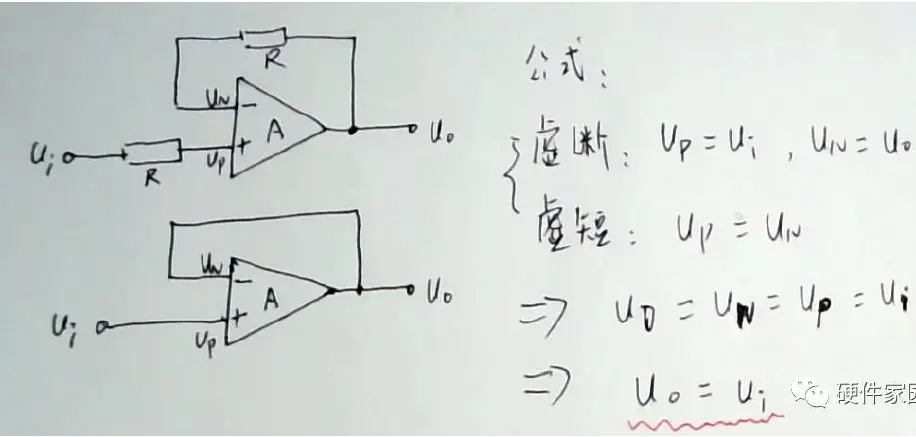 R
U_N
−
A
+
U_P
U_i
R
U_o
U_N
−
A
+
U_P
U_i
U_o
公式:
虚断: U_P = U_i , U_N = U_o
虚短: U_P = U_N
=> U_O = U_N = U_P = U_i
=> U_o = U_i
硬件家园